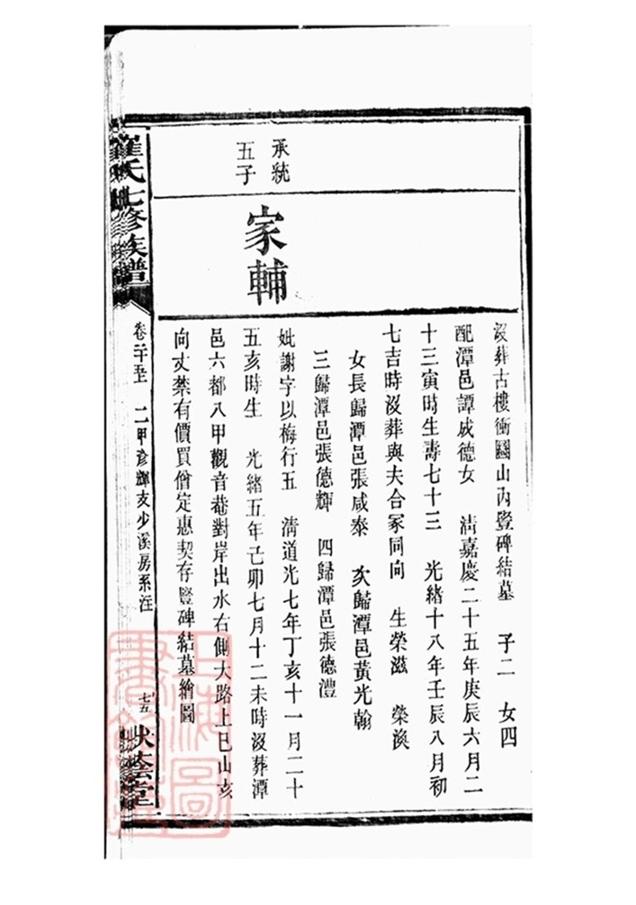 沒葬古樓衝團山內豎碑結墓 子二 女四
配潭邑譚成德女 清嘉慶二十五年庚辰六月二
十三寅時生壽七十三 光緒十八年壬辰八月初
七吉時沒葬與夫合冢同向 生榮滋 榮渙
女長歸潭邑張咸泰 次歸潭邑黃光翰
三歸潭邑張德輝 四歸潭邑張德澧
承統
五子
家輔
妣謝字以梅行五 清道光七年丁亥十一月二十
五亥時生 光緒五年己卯七月十二未時沒葬潭
邑六都八甲觀音菴對岸出水右側大路上巳山亥
向丈禁有價買僧定惠契存豎碑結墓繪圖
羅氏七修族譜
卷二十五 二甲彥輝支少溪房系注
七五
映藜堂
上海圖
書館藏